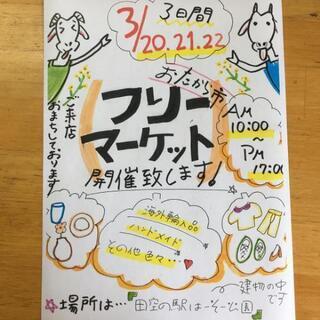 3日間
3/20.21.22
おたから市
フリー
マーケット
開催致します!
AM
10:00
~
PM
17:00
ご来店
おまちしております
海外輸入品
ハンドメイド
その他色々…
建物の中
です
場所は…田空の駅はーそー公園